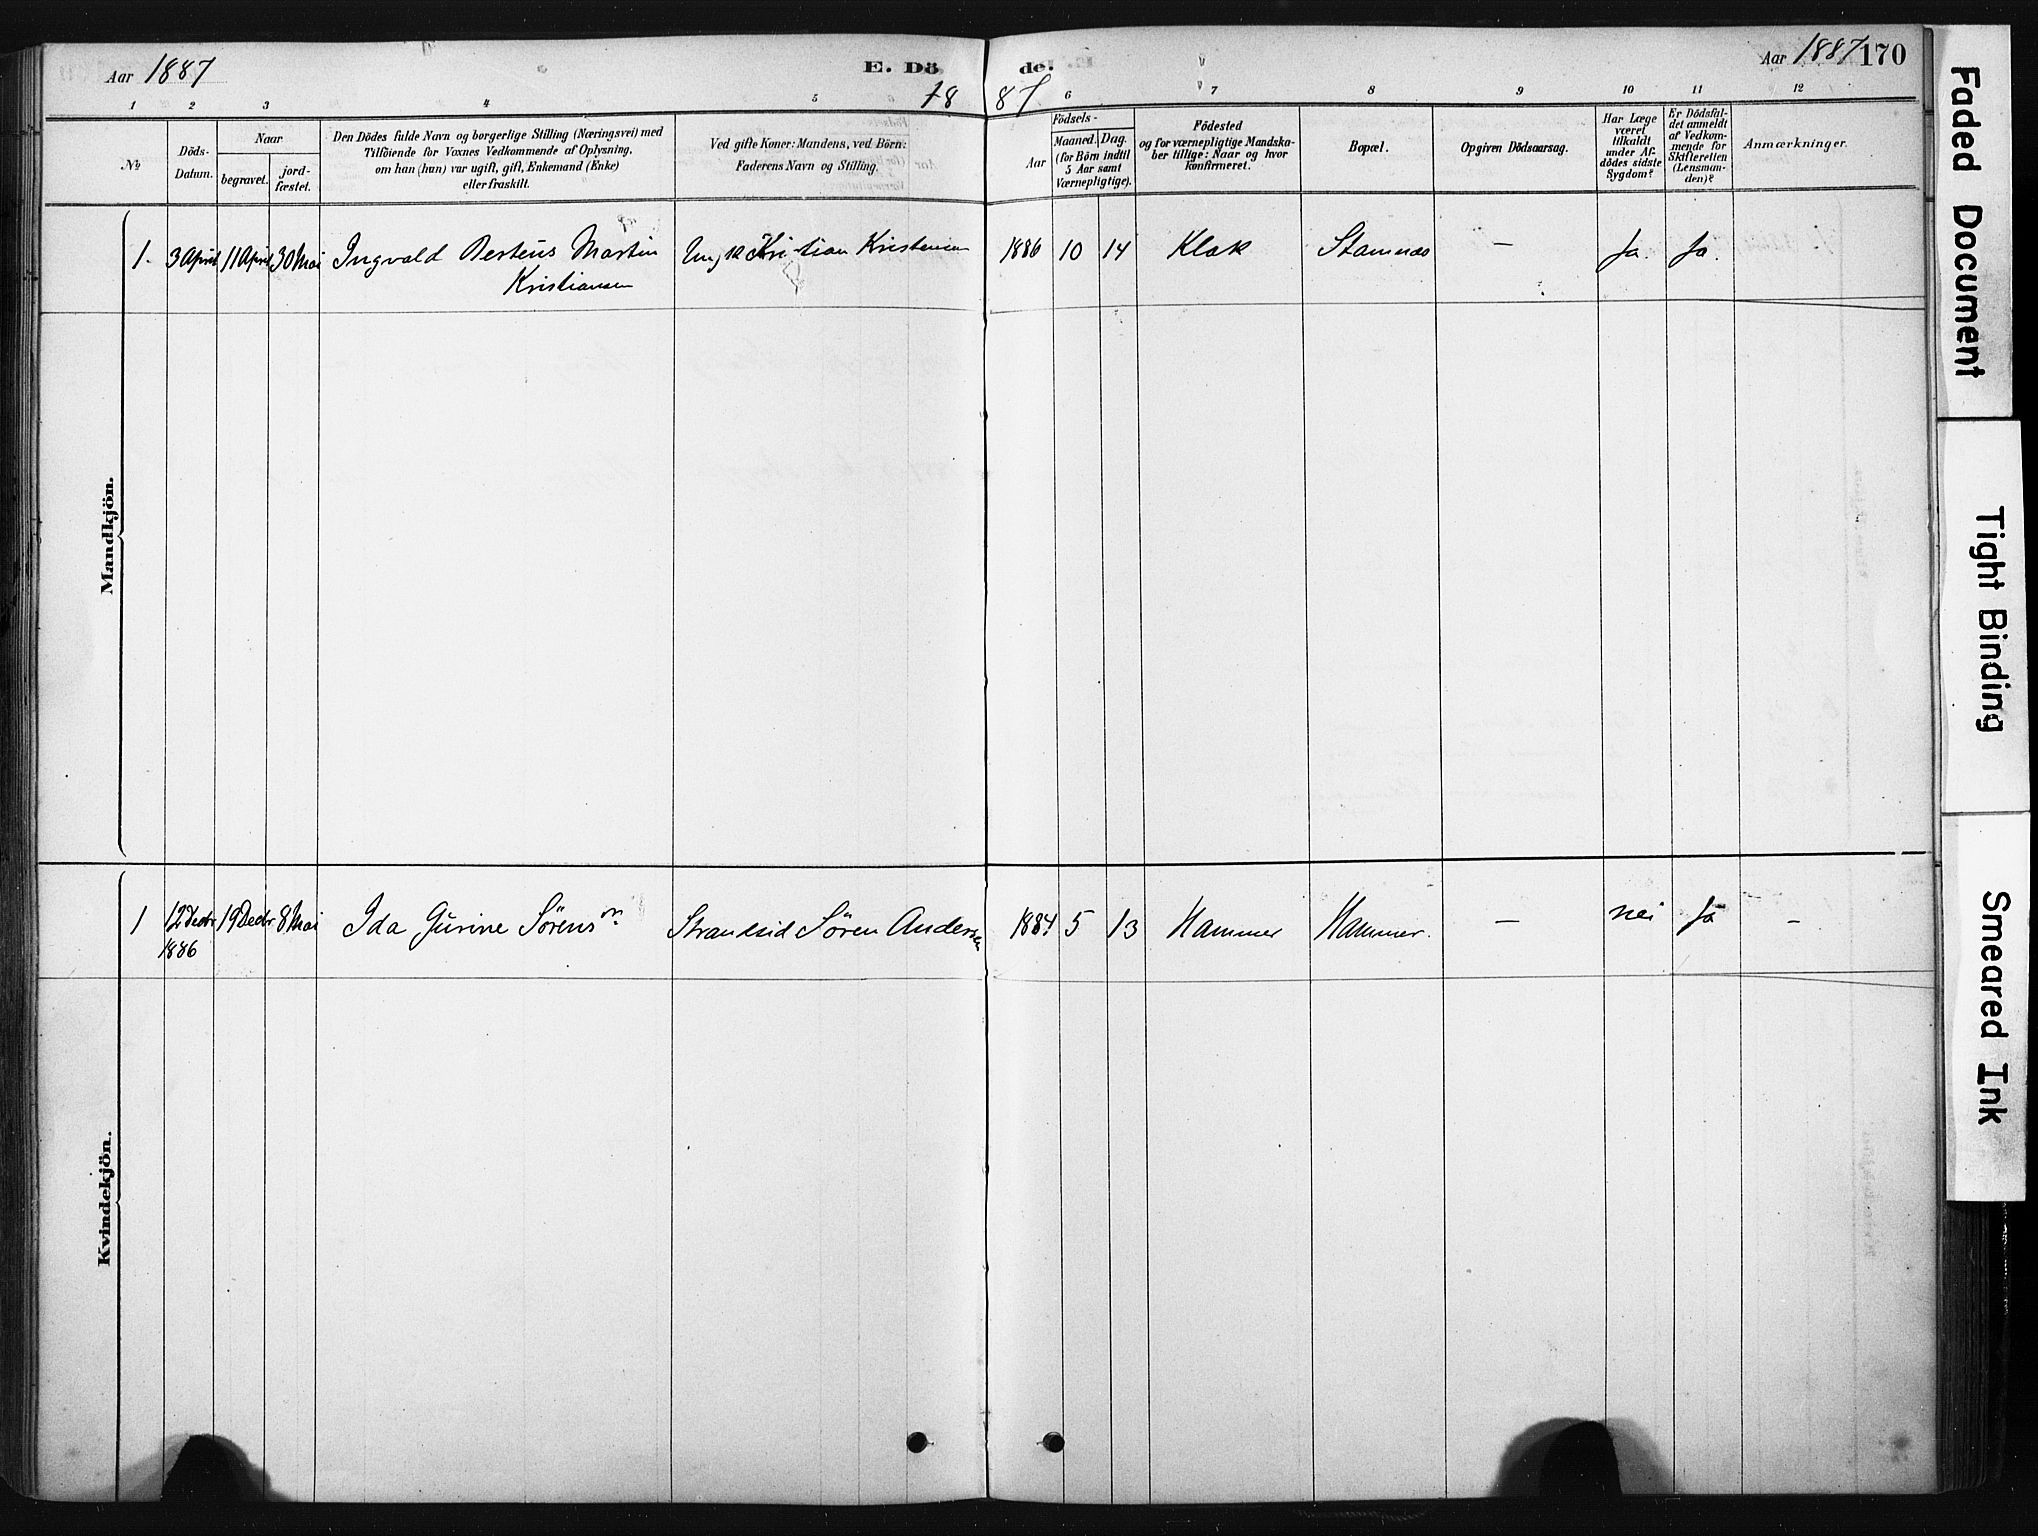 Aar 1887
E. Döde.
1887
Aar 1887 170
1 2 3 4 5 6 7 8 9 10 11 12
No.
Döds-Datum.
Naar
begravet.
jord-fæstet.
Den Dödes fulde Navn og borgerlige Stilling (Næringsvei) med
Tilföiende for Voxnes Vedkommende af Oplysning,
om han (hun) var ugift, gift, Enkemand (Enke)
eller fraskilt.
Ved gifte Koner: Mandens, ved Börn:
Faderens Navn og Stilling.
Födsels-
Aar
Maaned. Dag.
(for Börn indtil
5 Aar samt
Værnepligtige).
Födested
og for værnepligtige Mandska-
ber tillige: Naar og hvor
konfirmeret.
Bopæl.
Opgiven Dödsaarsag.
Har Læge
været
tilkaldt
under Af-
dödes sidste
Sygdom?
Er Dödsfal-
det anmeldt
af Vedkom-
mende for
Skifteretten
(Lensman-
den)?
Anmærkninger.
Mandkjön.
1. 3 April 11 April 30 Mai Ingvald Berteus Martin Kristian Kristensen 1886 10 14 Klak Stamnæs — Ja. Ja.
Kristiansen
Kvindekjön.
1 12 Decbr 19 Decbr 8 Mai Ida Gurine Sørensn Strandsid Søren Andersen 1884 5 13 Hammer Hammer. — nei Ja —
1886
Faded Document
Tight Binding
Smeared Ink